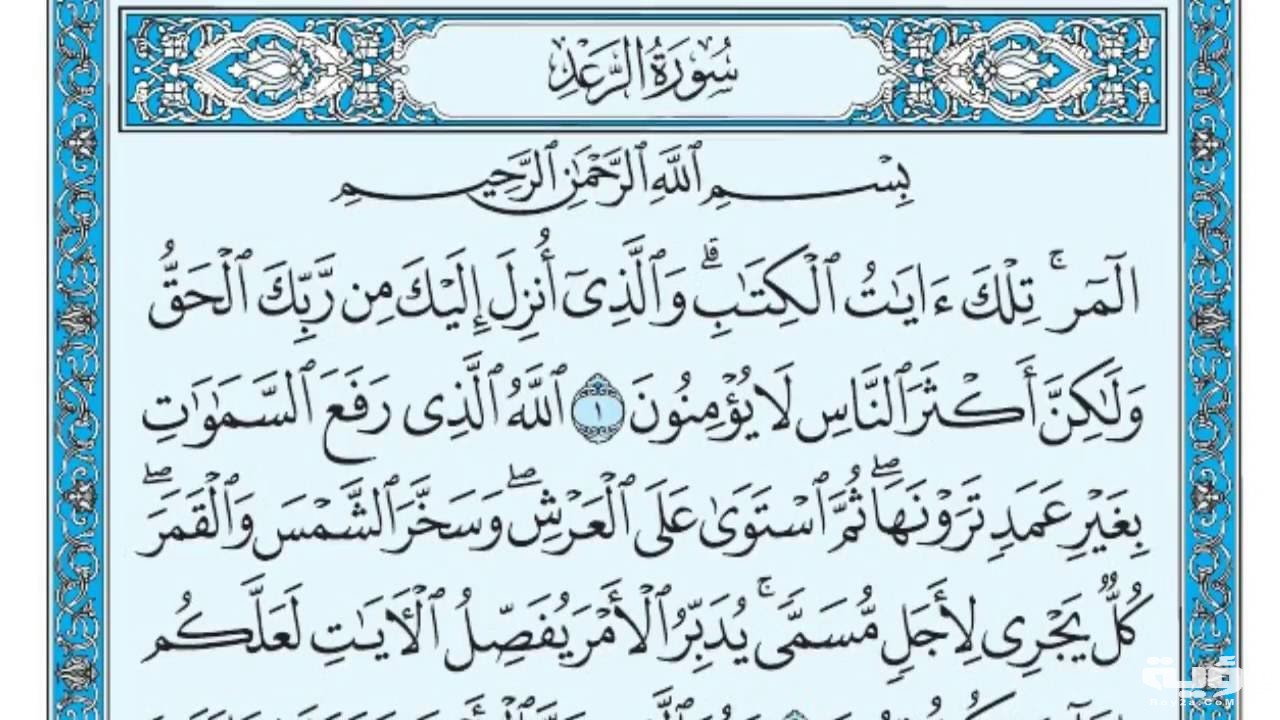 سُورَةُ الرَّعْدِ
بِسْمِ ٱللَّهِ ٱلرَّحْمَٰنِ ٱلرَّحِيمِ
الٓمٓر ۚ تِلْكَ ءَايَٰتُ ٱلْكِتَٰبِ ۗ وَٱلَّذِىٓ أُنزِلَ إِلَيْكَ مِن رَّبِّكَ ٱلْحَقُّ
وَلَٰكِنَّ أَكْثَرَ ٱلنَّاسِ لَا يُؤْمِنُونَ ١ ٱللَّهُ ٱلَّذِى رَفَعَ ٱلسَّمَٰوَٰتِ
بِغَيْرِ عَمَدٍ تَرَوْنَهَا ۖ ثُمَّ ٱسْتَوَىٰ عَلَى ٱلْعَرْشِ ۖ وَسَخَّرَ ٱلشَّمْسَ وَٱلْقَمَرَ ۖ
كُلٌّ يَجْرِى لِأَجَلٍ مُّسَمًّى ۚ يُدَبِّرُ ٱلْأَمْرَ يُفَصِّلُ ٱلْـَٔايَٰتِ لَعَلَّكُم